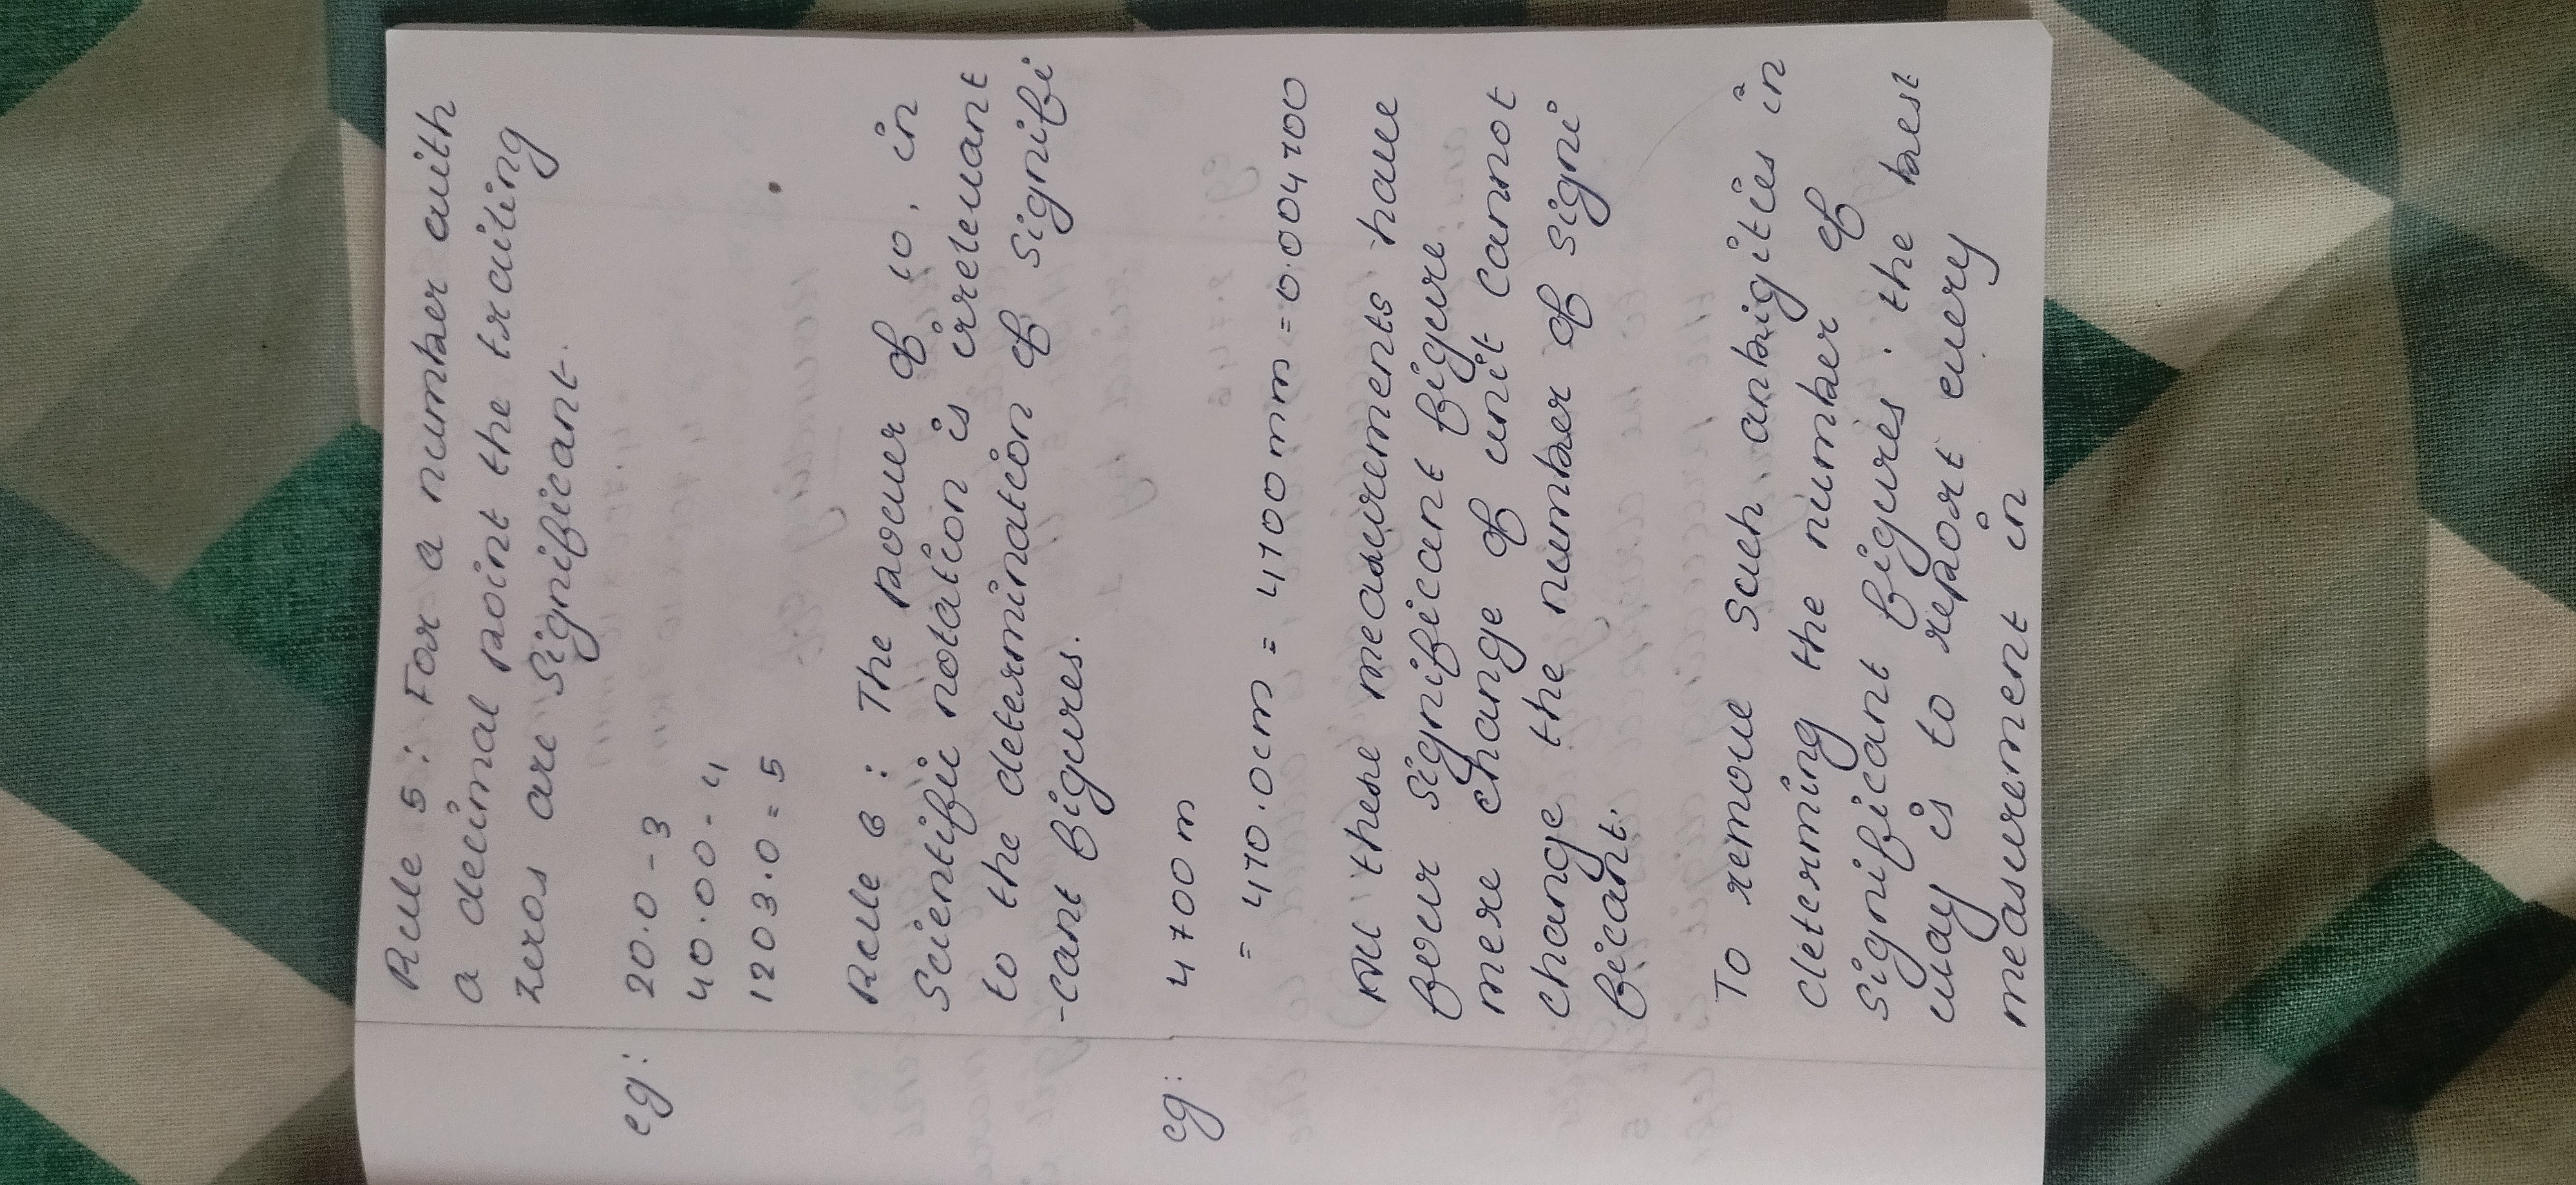 Rule 5: For a number with
a decimal point the trailing
zeros are significant.
eg: 20.0 - 3
40.00 - 4
1203.0 = 5
Rule 6 : The power of 10, in
scientific notation is irrelevant
to the determination of signifi
-cant figures.
eg: 4700 m
= 470.0cm = 4700 mm = 0.004700
All these measurements have
four significant figure
mere change of unit cannot
change the number of signi
ficant.
To remove such anbigities in
determing the number of
significant figures. the best
way is to report every
measurement in